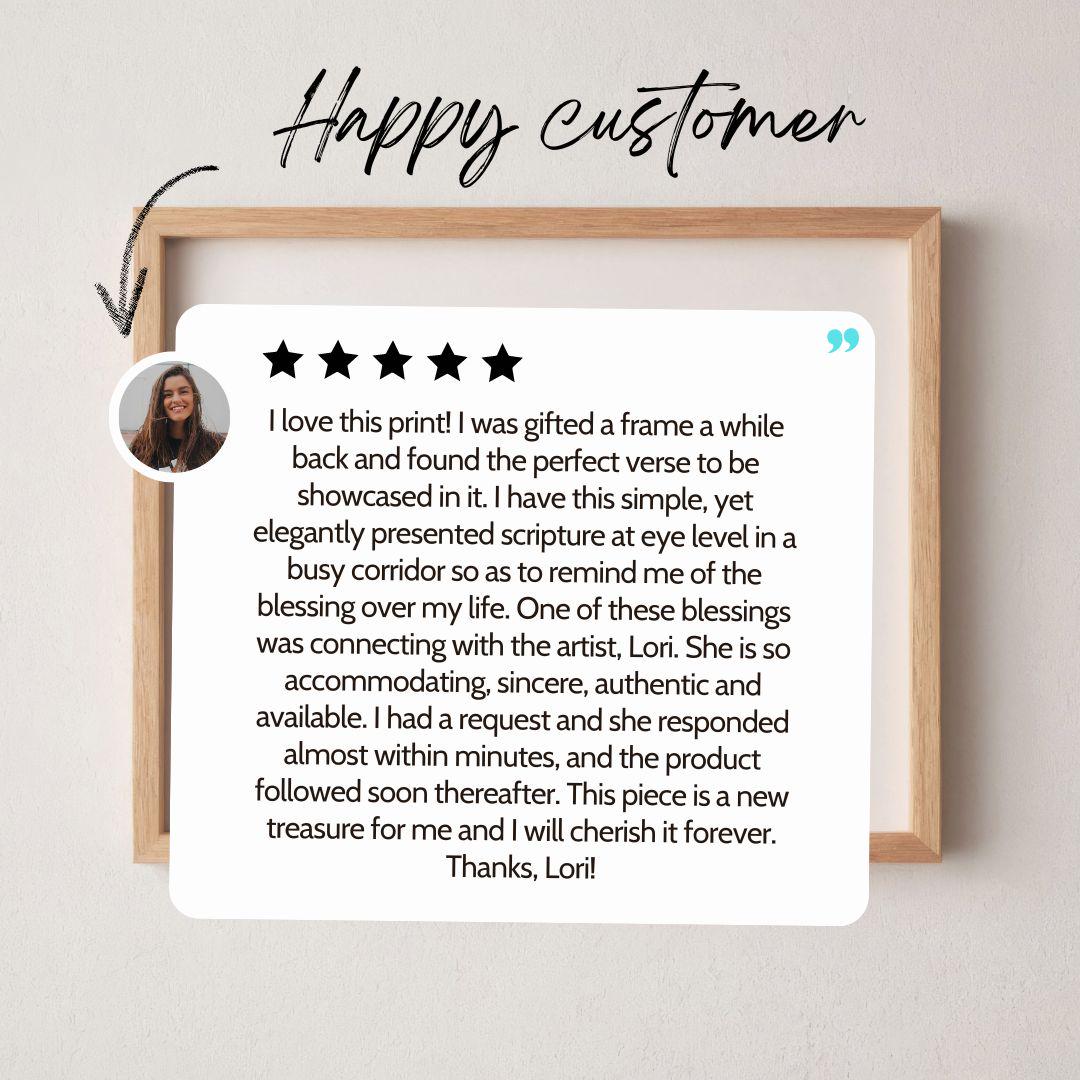 Happy customer
I love this print! I was gifted a frame a while
back and found the perfect verse to be
showcased in it. I have this simple, yet
elegantly presented scripture at eye level in a
busy corridor so as to remind me of the
blessing over my life. One of these blessings
was connecting with the artist, Lori. She is so
accommodating, sincere, authentic and
available. I had a request and she responded
almost within minutes, and the product
followed soon thereafter. This piece is a new
treasure for me and I will cherish it forever.
Thanks, Lori!